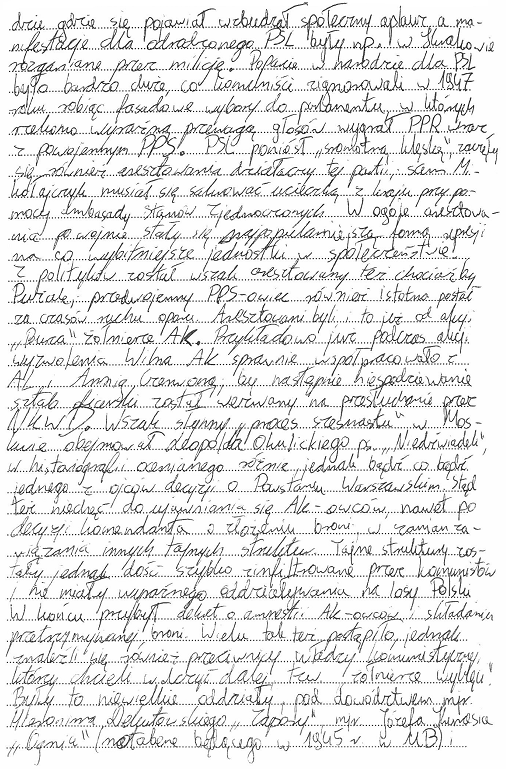 dzie gdzie się pojawiał wzbudzał społeczny aplauz a ma-
nifestacje dla odrodzonego PSL były np. w Krakowie
rozganiane przez milicję. Poparcie w narodzie dla PSL
było bardzo duże, co komuniści zignorowali w 1947
roku robiąc fasadowe wybory do parlamentu, w których
rzekomo wyraźną przewagą głosów wygrał PPR wraz
z powojennym PPS. PSL poniósł „sromotną klęskę”, zaczęły
się również aresztowania działaczy tej partii, sam Mi-
kołajczyk musiał się salwować ucieczką z kraju przy po-
mocy ambasady Stanów Zjednoczonych. W ogóle aresztowa-
nia po wojnie stały się najpopularniejszą formą represji
na co wybitniejsze jednostki w społeczeństwie.
Z polityków został wszak aresztowany też chociażby
Pużak, przedwojenny PPS-owiec również istotna postać
za czasów ruchu oporu. Aresztowani byli i to już od akcji
„Burza” żołnierze AK. Przykładowo już podczas akcji
wyzwolenia Wilna AK sprawnie współpracowało z
AL i Armią Czerwoną, by następnie niespodziewanie
sztab oficerski został wezwany na przesłuchanie przez
NKWD. Wszak słynny „proces szesnastu” w Mos-
kwie obejmował Leopolda Okulickiego ps. „Niedźwiadek”,
w historiografii ocenianego różnie jednak bądź co bądź
jednego z ojców decyzji o Powstaniu Warszawskim. Stąd
też niechęć do ujawniania się AK-owców, nawet po
decyzji komendanta o złożeniu broni w zamian za-
wiązania innych tajnych struktur. Tajne struktury zos-
tały jednak dość szybko zinfiltrowane przez komunistów
i nie miały wyraźnego oddziaływania na losy Polski
W końcu przybył dekret o amnestii AK-owców i składaniu
przetrzymywanej broni. Wielu tak też postąpiło, jednak
znaleźli się również przeciwnicy władzy komunistycznej,
którzy chcieli walczyć dalej, tzw. „żołnierze wyklęci”.
Były to niewielkie oddziały, pod dowództwem mjr.
Hieronima Dekutowskiego „Zapory”, mjr. Józefa Kurasia
„Ognia” (notabene będącego w 1945 r w UB) i